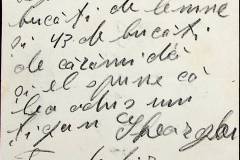 bucăți de lemne
și 43 de bucăți
de cărămidă
și el spune că
l-a adus un
țigan Gheorghe